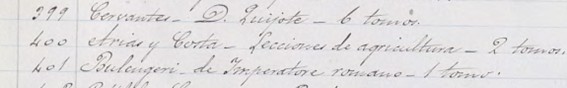 399 Cervantes - D. Quijote - 6 tomos.
400 Arias y Costa - Lecciones de agricultura - 2 tomos.
401 Bulengeri - de Imperatore romano - 1 tomo.